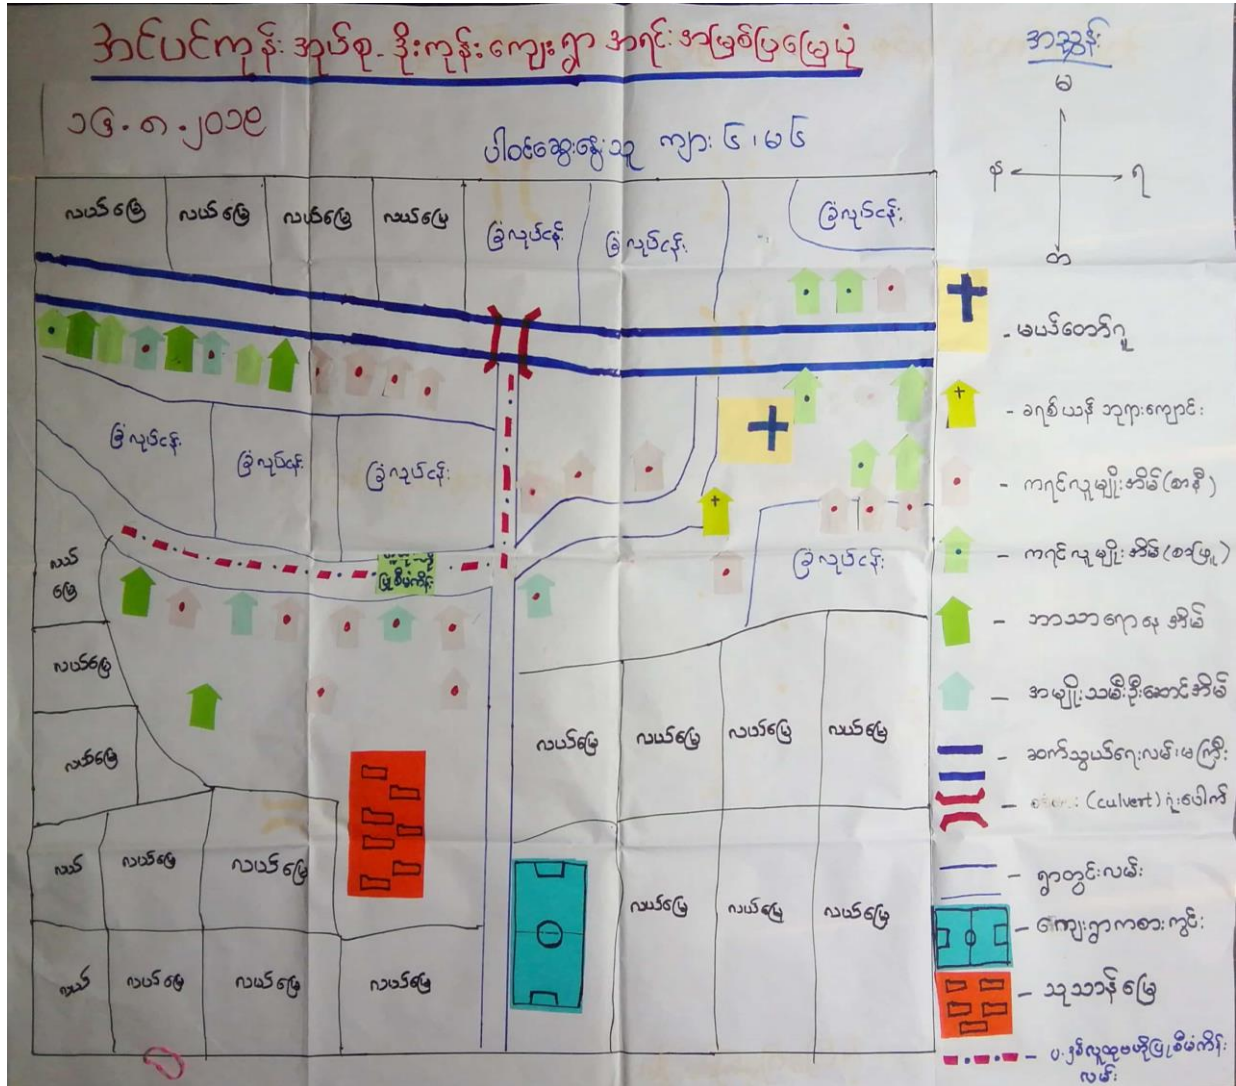 အင်ပင်ကုန်းအုပ်စု-ဒိုးကုန်းကျေးရွာ အရင်းအမြစ်ပြမြေပုံ
၁၆.၈.၂၀၁၉
ပါဝင်ဆွေးနွေးသူ ကျား ၆၊ မ ၆
အညွှန်း
မ
န
ရ
တ
လယ်မြေ
လယ်မြေ
လယ်မြေ
လယ်မြေ
ခြံလုပ်ငန်း
ခြံလုပ်ငန်း
ခြံလုပ်ငန်း
ခြံလုပ်ငန်း
ခြံလုပ်ငန်း
ခြံလုပ်ငန်း
ခြံလုပ်ငန်း
ပြုစီမံကိန်း
လယ်
မြေ
လယ်မြေ
လယ်မြေ
လယ်မြေ
လယ်မြေ
လယ်မြေ
လယ်မြေ
လယ်
လယ်မြေ
လယ်မြေ
လယ်မြေ
လယ်မြေ
လယ်မြေ
လယ်
လယ်မြေ
လယ်မြေ
လယ်မြေ
- မယ်တော်ဂူ
- ခရစ်ယန် ဘုရားကျောင်း
- ကရင်လူမျိုးအိမ် (စာနီ)
- ကရင်လူမျိုးအိမ် (စာဖြူ)
- ဘာသာရောနေအိမ်
- အမျိုးသမီးဦးဆောင်အိမ်
- ဆက်သွယ်ရေးလမ်းမကြီး
- (culvert) ဂုံးပေါက်
- ရွာတွင်းလမ်း
- ကျေးရွာကစားကွင်း
- သုသာန်မြေ
- ပ-နှစ်လူထုဗဟိုပြုစီမံကိန်း
လမ်း